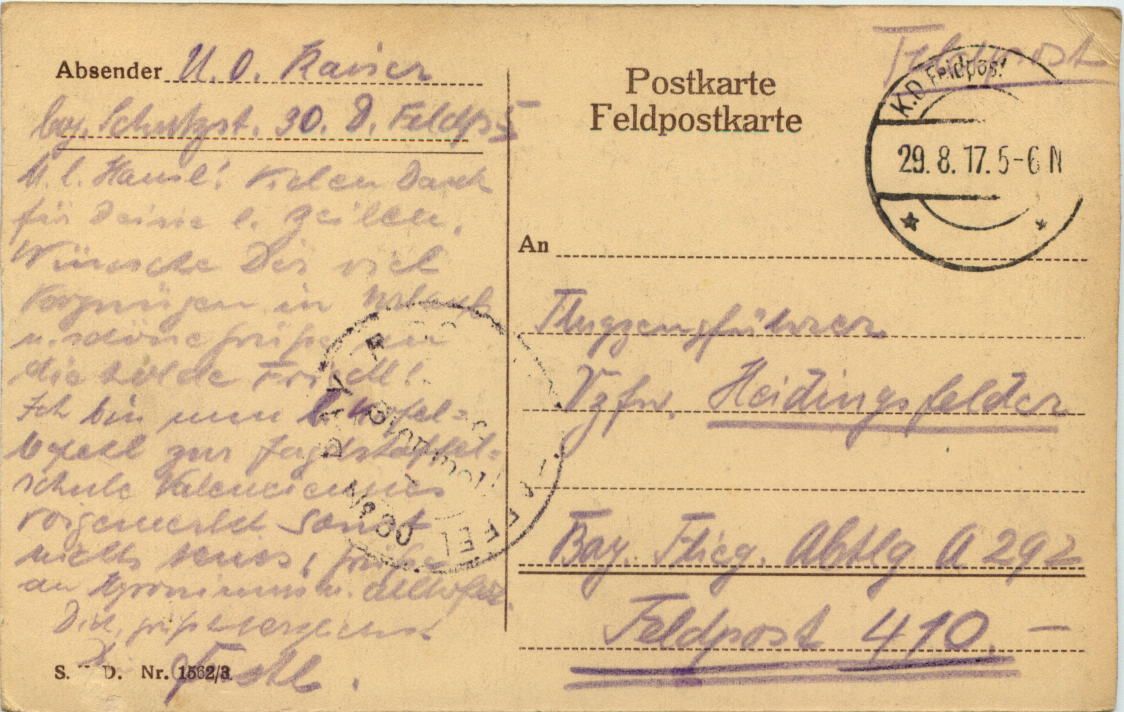 Absender U. O. Kaiser
bay. Schutzst. 30. D. Feldp. 5
M. l. Hansl! Vielen Dank
für Deine l. Zeilen.
Wünsche Dir viel
Vergnügen in Urlaub
u. schöne Grüße an
die holde Friedl!
Ich bin nun
befehl zur Jagdstaffel-
schule Valenciennes
vorgemerkt sonst
nichts neues, Grüße
an u.
Dich grüßt herzlichst
S. D. Nr. 1562/3
Postkarte
Feldpostkarte
Feldpost
K.D. Feldpost
29. 8. 17. 5-6 N
An
Flugzeugführer
Vzfw. Heidingsfelder
Bay. Flieg. Abtlg A 292
Feldpost 410. —